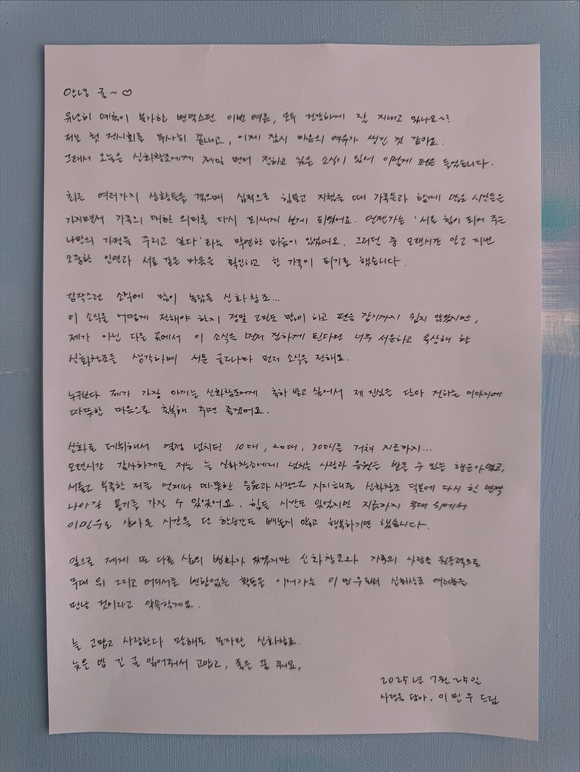 안녕 귤~♡
유난히 예측이 불가한 변덕스런 이번 여름, 모두 건강하게 잘 지내고 있나요~?
저는 첫 전시회를 무사히 끝내고, 이제 잠시 마음의 여유가 생긴 것 같아요.
그래서 오늘은 신화창조에게 제일 먼저 전하고 싶은 소식이 있어 이렇게 펜을 들었습니다.
최근 여러가지 상황들을 겪으며 심적으로 힘들고 지쳤을 때 가족들과 함께 많은 시간들을
가지면서 가족의 대한 의미를 다시 되새기게 되었어요. 언젠가는 '서로 힘이 되어 주는
나만의 가정을 꾸리고 싶다' 라는 막연한 마음이 있었어요. 그러던 중 오랜시간 알고 지낸
소중한 인연과 서로 같은 마음을 확인하고 한 가족이 되기로 했습니다.
갑작스런 소식에 많이 놀랐을 신화창조...
이 소식을 어떻게 전해야 하지 정말 고민도 많이 하고 펜을 잡기까지 쉽지 않았지만,
제가 아닌 다른 곳에서 이 소식을 먼저 접하게 된다면 너무 서운하고 속상해 할
신화창조를 생각하며 서둘러 먼저 소식을 전해요.
누구보다 제가 가장 아끼는 신화창조에게 축하 받고 싶어서 제 진심을 담아 전하는 이야기에
따뜻한 마음으로 축복해 주면 좋겠어요.
신화로 데뷔해서 열정 넘치던 10대, 20대, 30대를 거쳐 지금까지...
오랜시간 감사하게도 저는 늘 신화창조에게 넘치는 사랑과 응원을 받을 수 있는 행운아였고,
서툴고 부족한 저를 언제나 따뜻한 응원과 사랑으로 지지해준 신화창조 덕분에 다시 한 번
나아갈 용기를 가질 수 있었어요. 힘든 시간도 있었지만 지금까지 무대 위에서
이민우로 살아온 시간을 단 한순간도 빼놓지 않고 행복하기만 했습니다.
앞으로 제게 또 다른 삶의 변화가 있겠지만 신화창조와 가족의 사랑을 원동력으로
무대 위 그리고 어디서든 변함없는 활동을 이어가는 이민우로 신화창조 여러분을
만날 것이라고 약속할게요.
늘 고맙고 사랑한다 말해도 모자란 신화창조.
늦은 밤 긴 글 읽어줘서 고맙고, 좋은 꿈 꿔요,
2025년 7월 25일
사랑을 담아, 이민우 드림